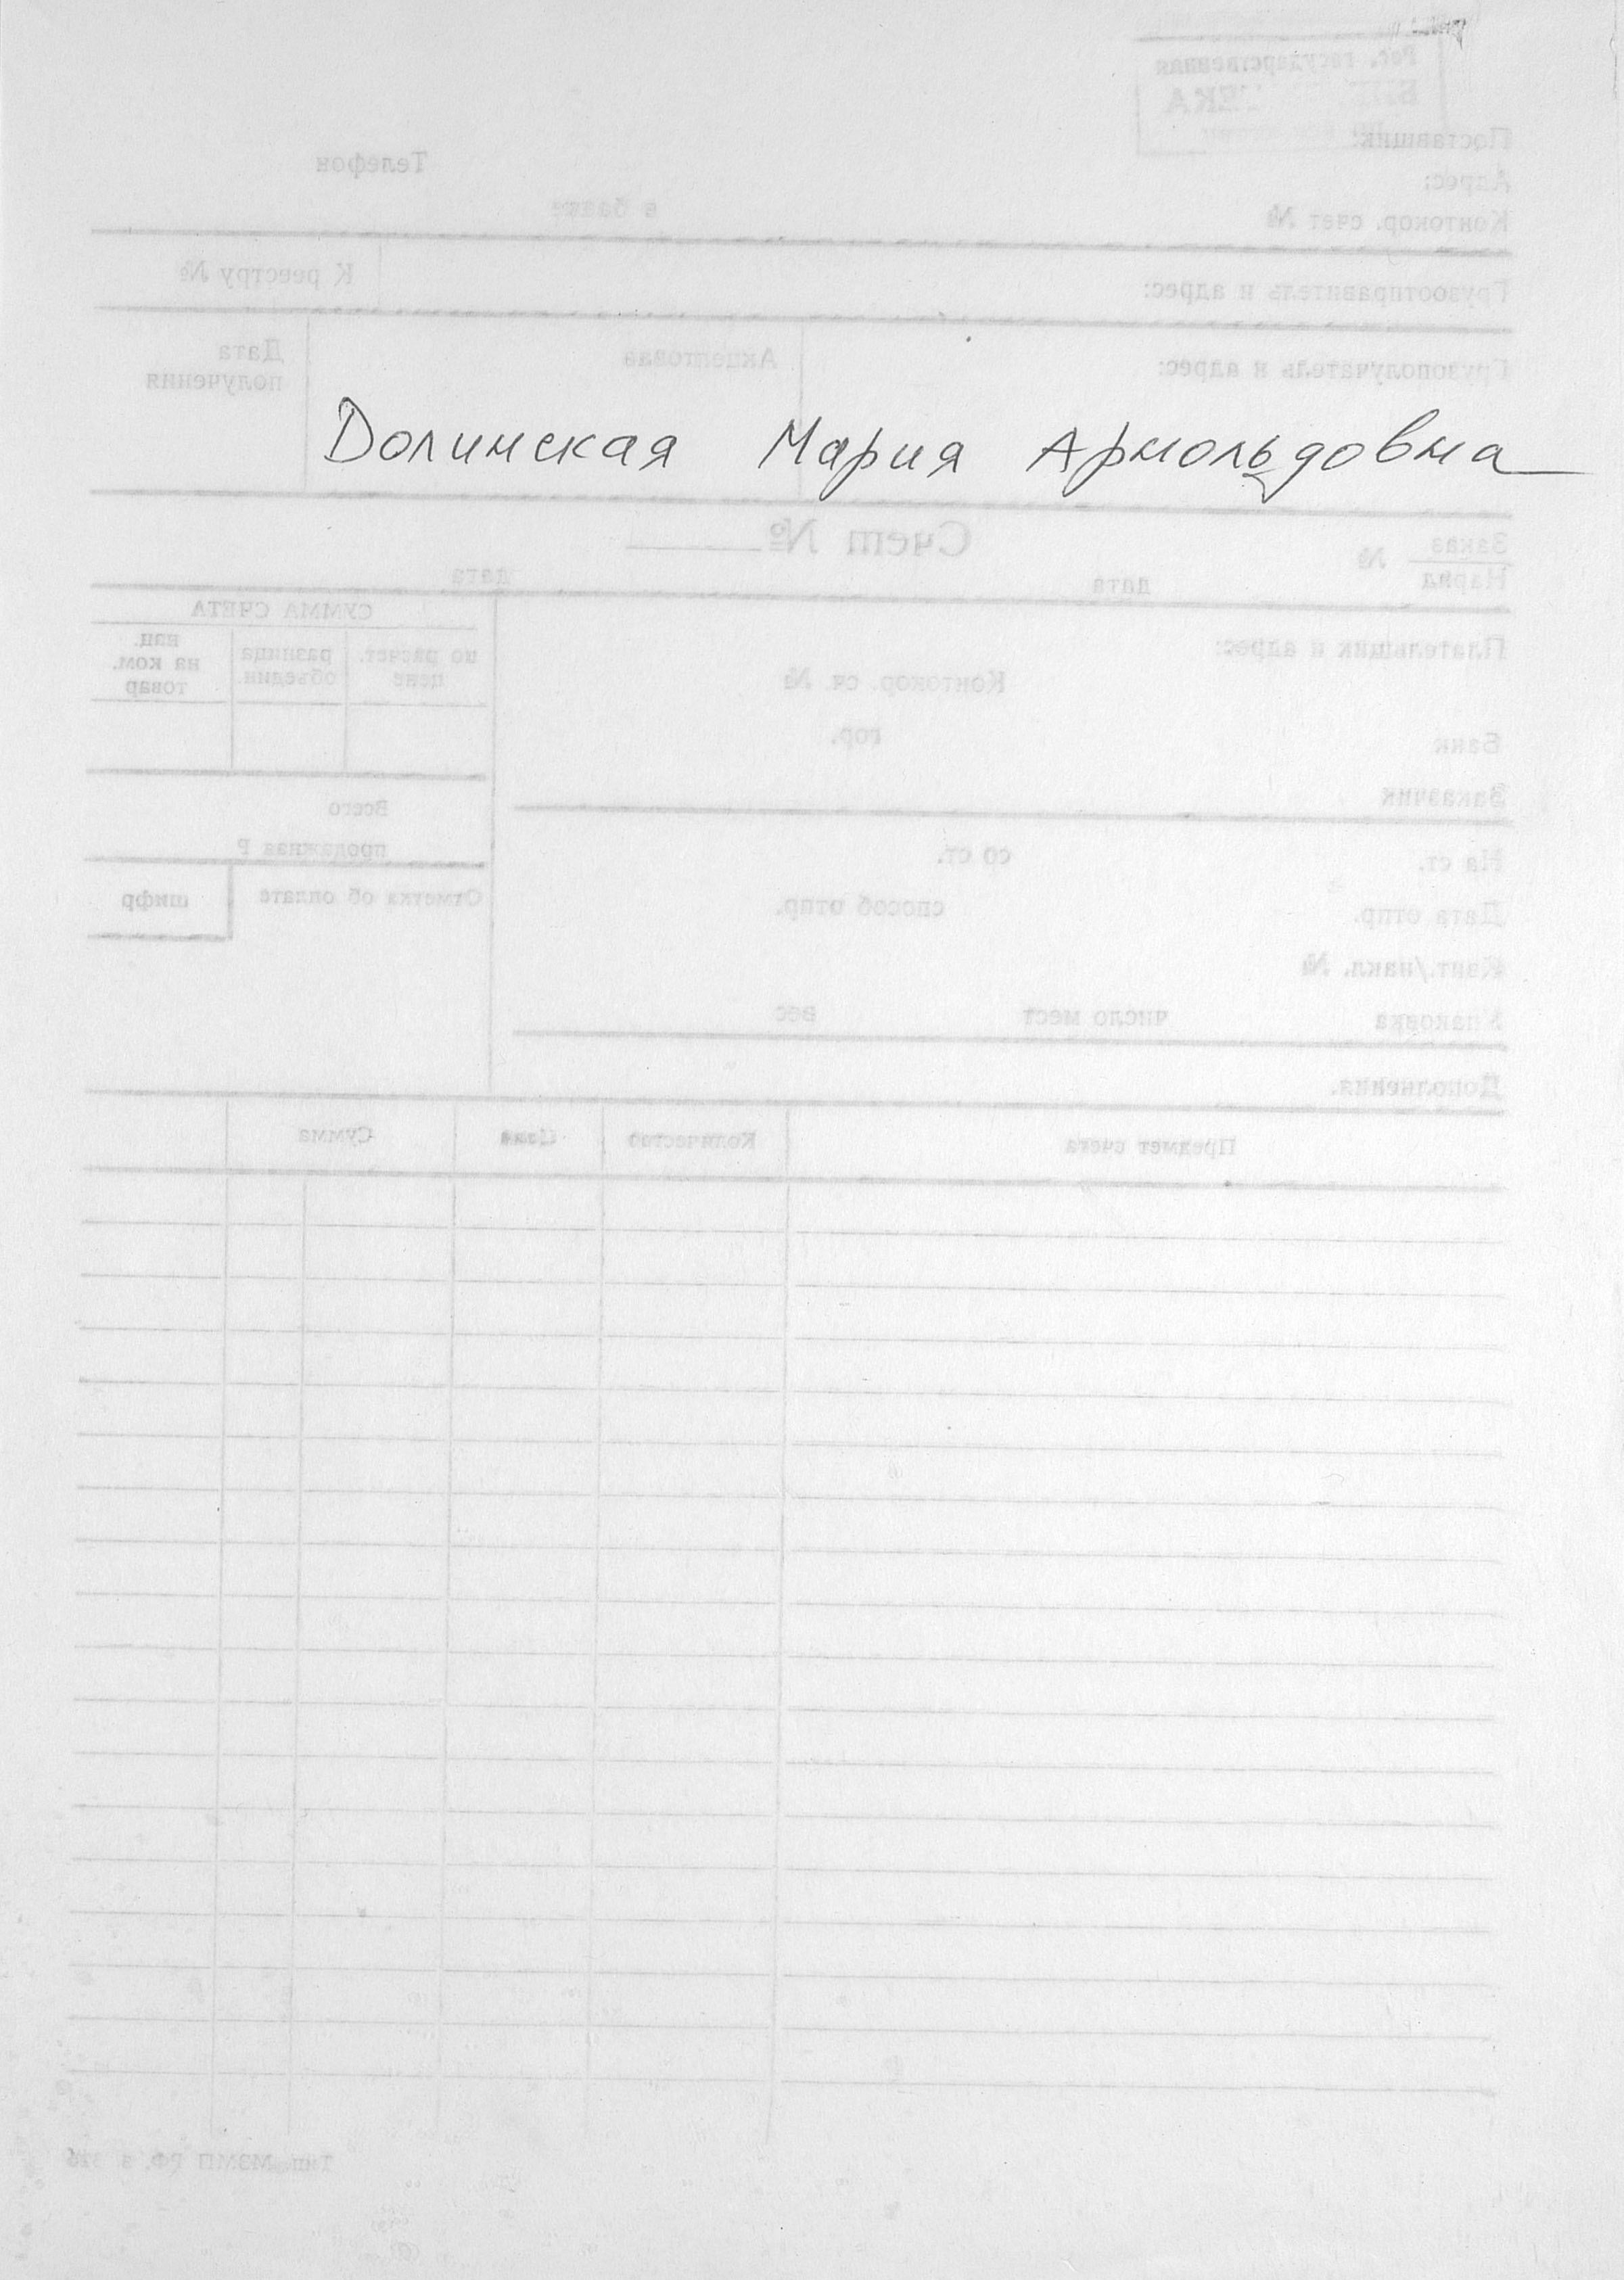 Рос. государственная
Поставщик:
Телефон
Адрес:
в банке
Контокор. счет №
К реестру №
Грузоотправитель и адрес:
Дата получения
Акцептован
Грузополучатель и адрес:
Долинская Мария Арнольдовна
Счет №
Заказ
Наряд
№
дата
дата
СУММА СЧЕТА
нац. на ком. товар
разница объедин.
по расчет. цене
Плательщик и адрес:
Контокор. сч. №
гор.
Банк
Заказчик
Всего
продажная Р
со ст.
На ст.
шифр
Отметка об оплате
способ отпр.
Дата отпр.
Квит./накл. №
Упаковка
число мест
вес
Дополнения.
Сумма
Цена
Количество
Предмет счета